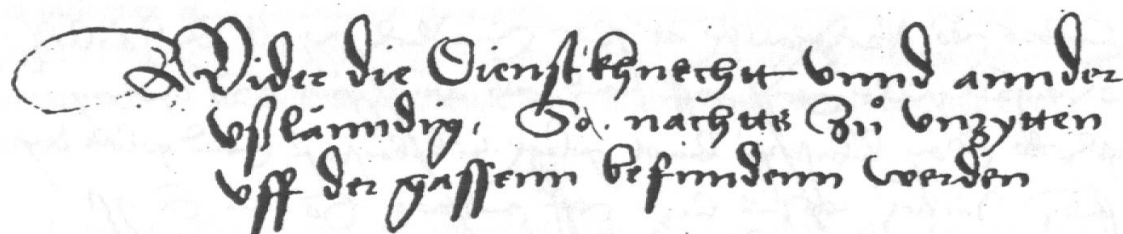 Wider die Dienstkhnechtt vnnd annder
vßlänndig, So. nachtts Zů vnzytten
vff der gassenn befundenn werden